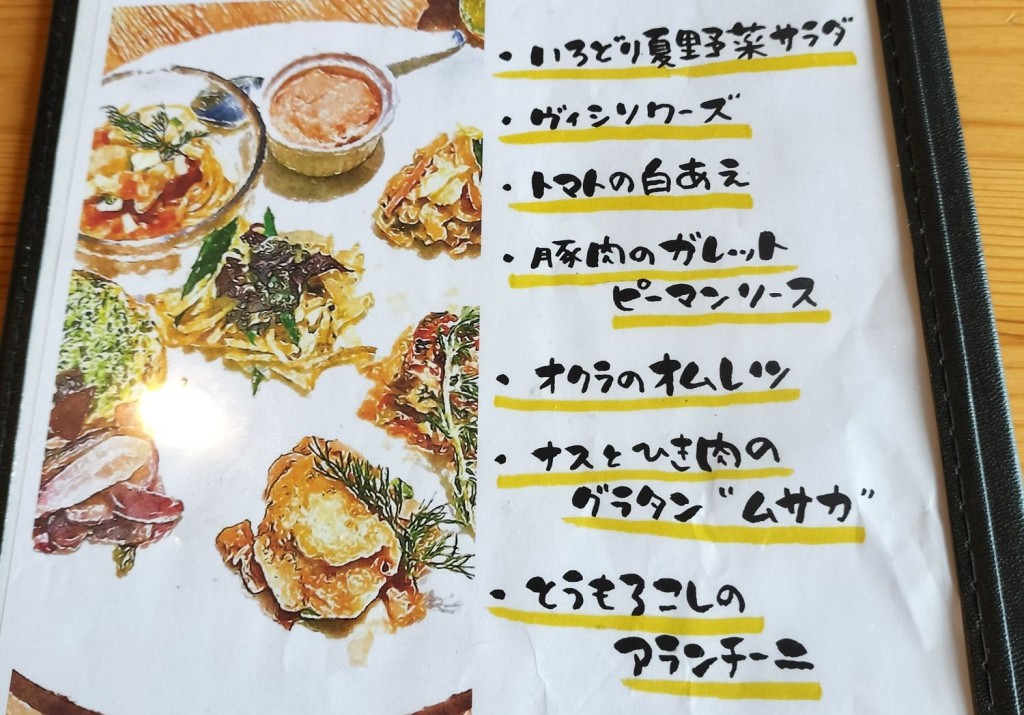 ・いろどり夏野菜サラダ
・ヴィシソワーズ
・トマトの白あえ
・豚肉のガレット
ピーマンソース
・オクラのオムレツ
・ナスとひき肉の
グラタン“ムサカ”
・とうもろこしの
アランチーニ